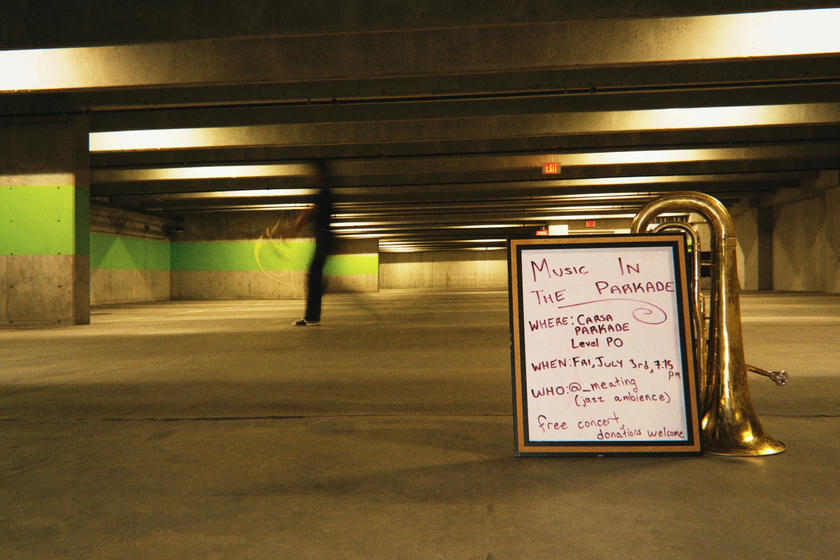 EXIT
Music In
The Parkade
WHERE: CARSA
PARKADE
Level PO
WHEN: FRI, JULY 3rd, 7:15
pm
WHO: @_meating
(jazz ambience)
free concert,
donations welcome